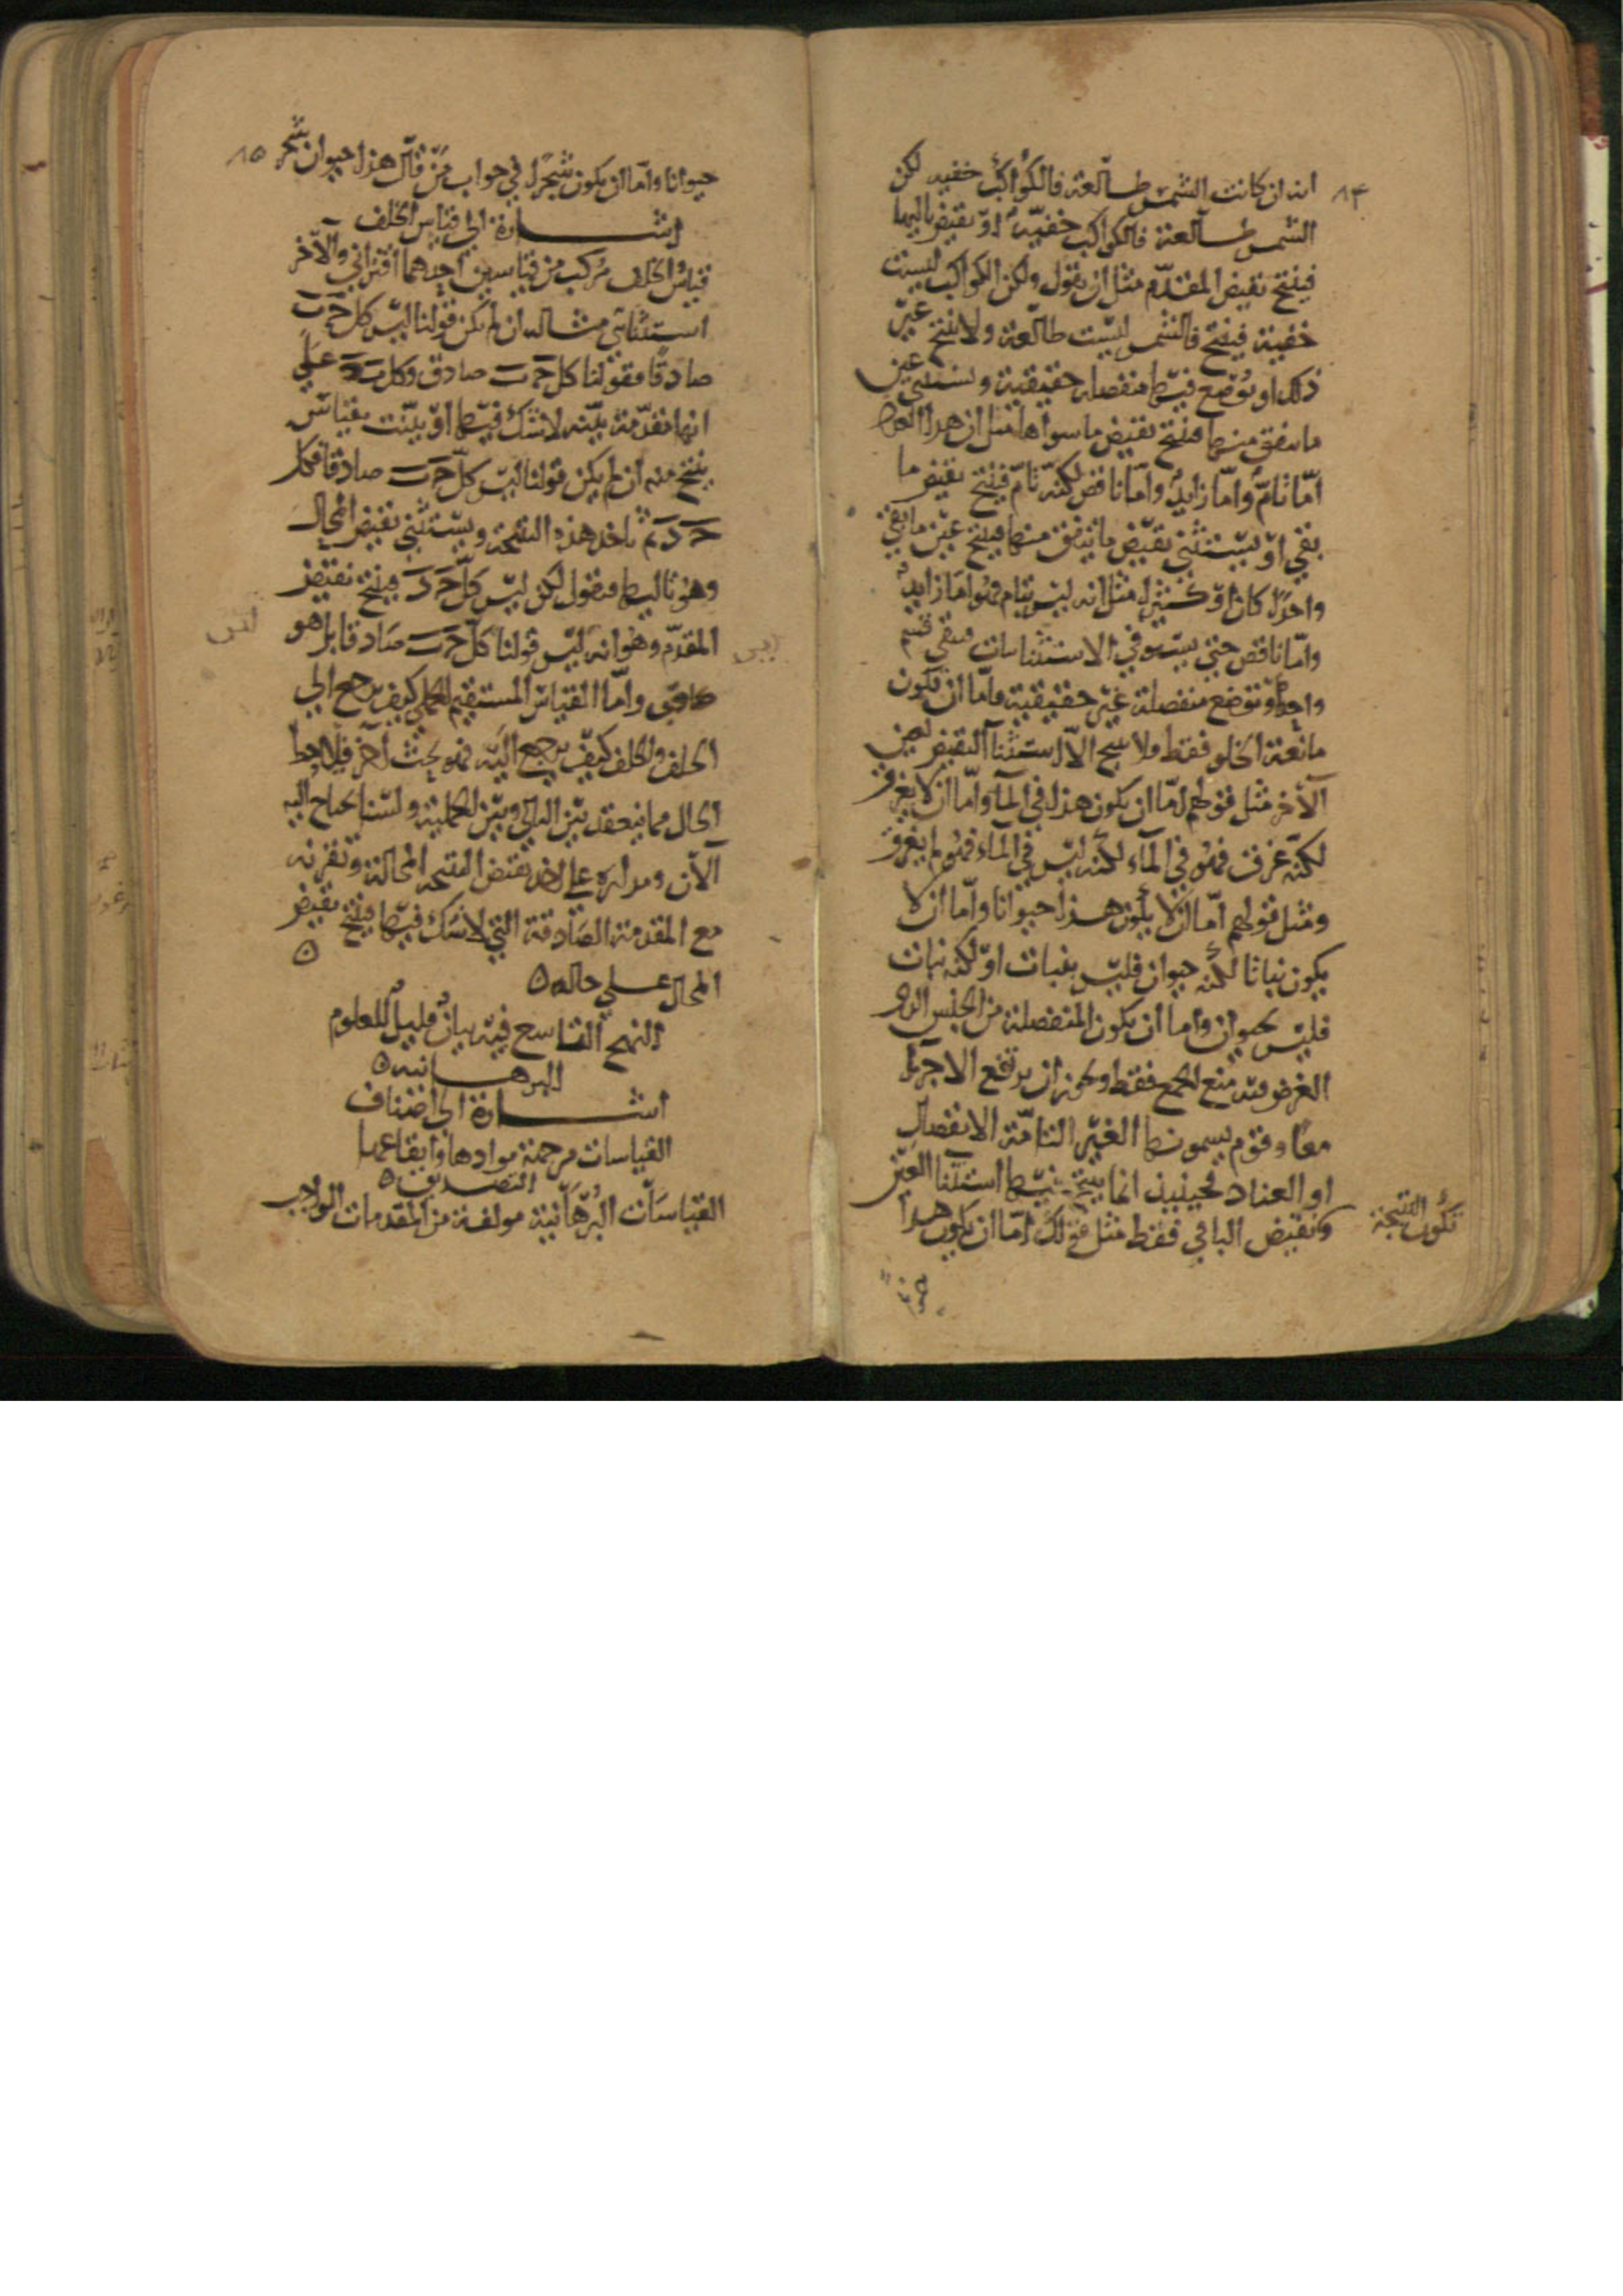 ٨٤
انه ان كانت الشمس طالعة فالكواكب خفيه لكن
الشمس طالعة فالكواكب خفيّة او نقيض تاليها
فينتج نقيض المقدّم مثل ان يقول ولكن الكواكب ليست
خفية فينتج فالشمس ليست طالعة ولا ينتج غير
ذلك او توضع فيها منفصلة حقيقية ويستثنى عين
ما يتفق منها فينتج نقيض ما سواها مثل ان هذا العدد
امّا تامّ وامّا زايد وامّا ناقص لكنّه تامّ فينتج نقيض ما
بقي او يستثني نقيض ما يتفق منها فينتج عين ما بقي
واحدًا كان او كثيرًا مثل انه ليس بتام فهو اما زايد
وامّا ناقص حتي يستوفي الاستثناءات فيبقي قسم
واحد او توضع منفصلة غير حقيقية فامّا ان تكون
مانعة الخلو فقط ولا ينتج الّا استثنا النقيض لعين
الآخر مثل قولهم امّا ان يكون هذا في الما وامّا ان لا يغرق
لكنّه غرق فهو في الماء لكنه ليس في الماء فهو لم يغرق
ومثل قولهم امّا ان لا يكون هذا حيوانا وامّا ان لا
يكون نباتا لكنه حيوان فليس بنبات او لكنه نبات
فليس بحيوان واما ان يكون المنفصلة من الجنس الذي
الغرض فيه منع الجمع فقط ويمكن ان يرتفع الاجزآ
معًا وقوم يسمونها الغير التامّة الانفصال
او العناد فحينيذ انما ينتج فيها استثنا العين
تكون النتيجة
ونقيض الباقي فقط مثل قولك امّا ان يكون هذا
٨٥
حيوانا وامّا ان يكون شجرًا في جواب من قال هذا حيوان شجر
اشارة الي قياس الخلف
قياس الخلف مركب من قياسين احدهما اقتراني والآخر
استثنائي مثاله ان لم يكن قولنا ليس كل حـ ب
صادقًا فقولنا كل حـ ب صادق وكل ب د علي
انها مقدّمة بيّنه لا شك فيها او بيّنت بقياس
ينتج منه ان لم يكن قولنا ليس كلّ حـ ب صادقا فكل
حـ د ثم ناخذ هذه النتيجة ويستثني نقيض المحال
وهو تاليها فنقول لكن ليس كلّ حـ د فينتج نقيض
المقدّم وهو انه ليس قولنا كلّ حـ ب صادقا بل هو
كاذب وامّا القياس المستقيم الحملي كيف يرجع الي
الخلف والخلف كيف يرجع اليه فهو بحث آخر فيلاحظ
الحال مما ينعقد بين التالي وبين الحملية ولسنا نحتاج اليه
الآن ومداره علي اخذ نقيض النتيجة المحالة وتقرنه
مع المقدمة الصادقة التي لا شك فيها فينتج نقيض
المحال علي حاله ه
النهج التاسع فيه بيان قليل للعلوم
البرهانيه ه
اشارة الي اصناف
القياسات من جهة موادها وايقاعها
التصديق ه
القياسات البرهانية مولفة من المقدمات الواجب